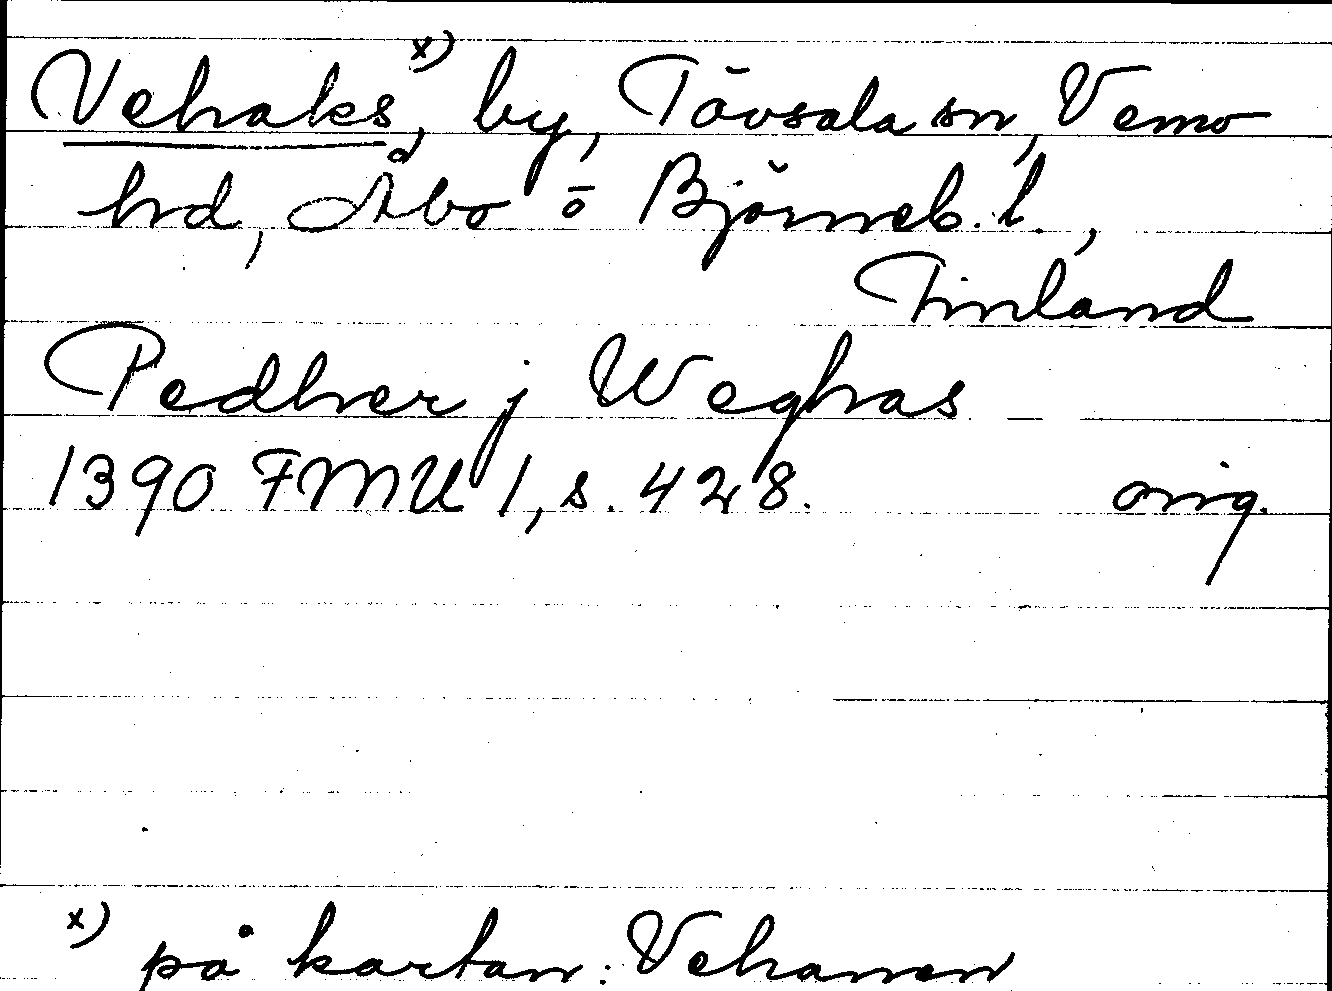 Vehaks x), by, Tövsala sn, Vemo
hrd, Åbo o Björneb. l.,
Finland
Pedher j Weghas
1390 FMU 1, s. 428. orig.
x) på kartan: Vehanen